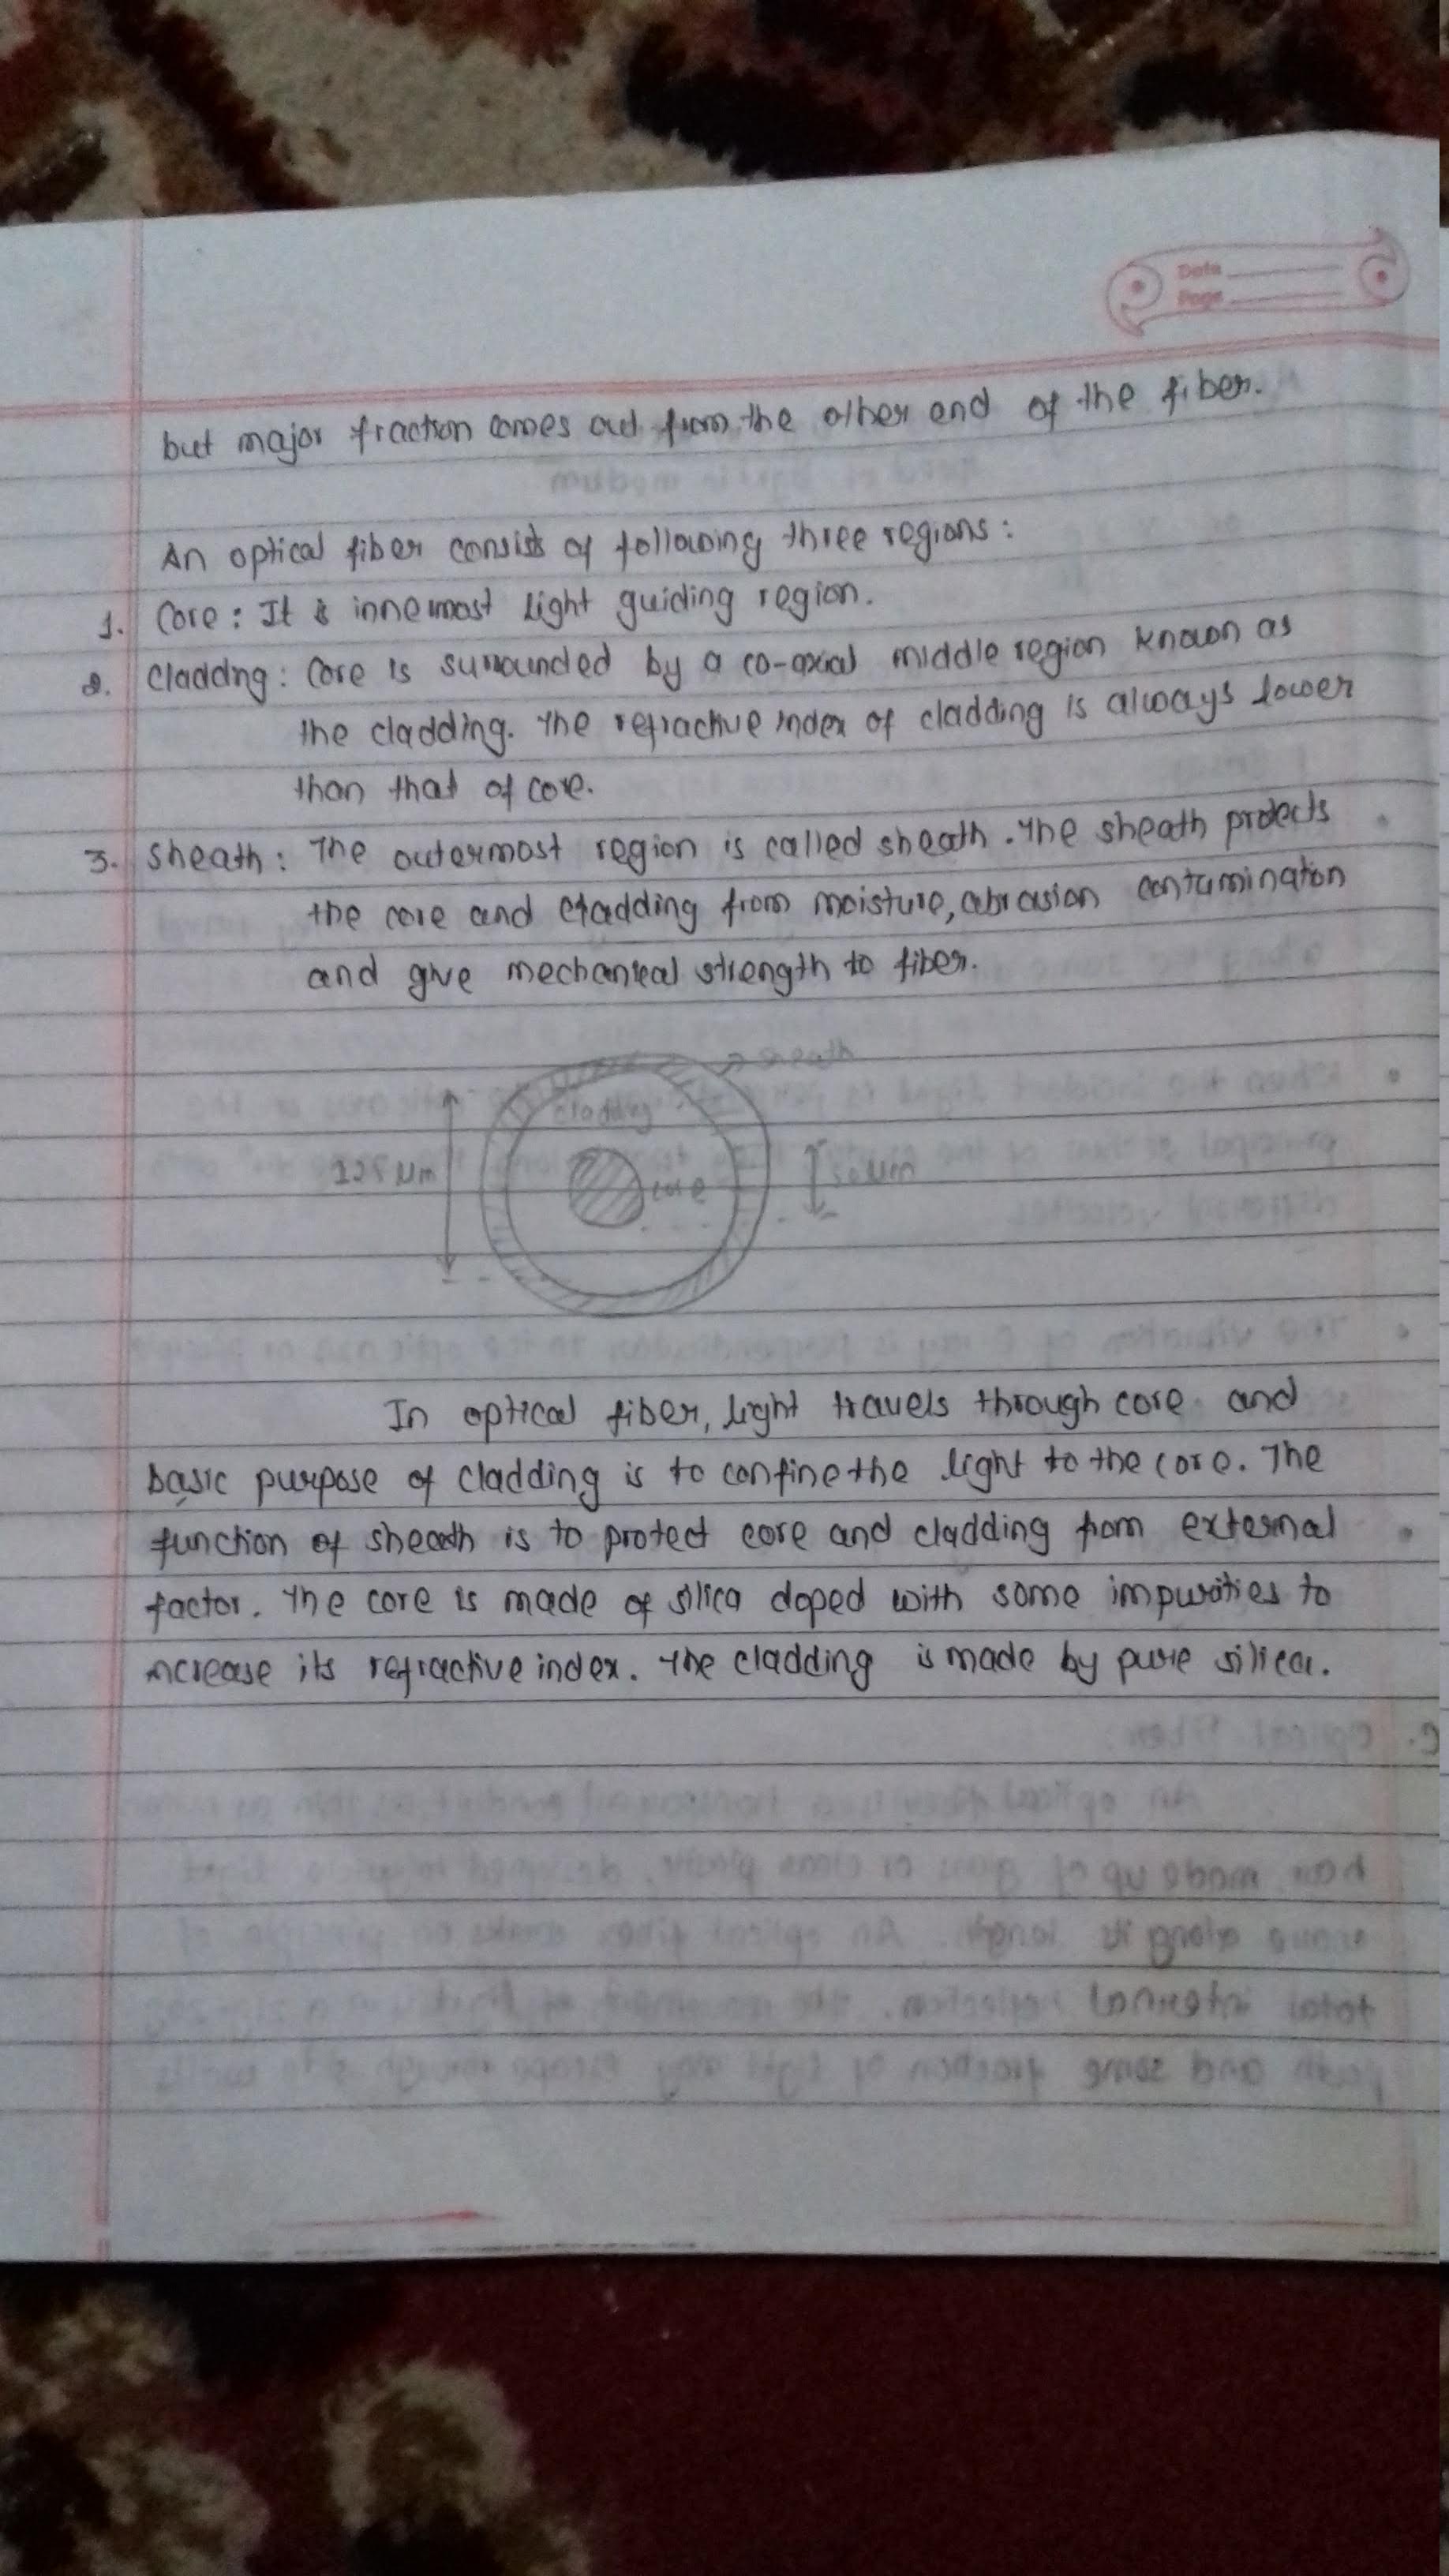 Date
Page
but major fraction comes out from the other end of the fiber.
An optical fiber consists of following three regions:
1. Core: It is innermost light guiding region.
2. Cladding: Core is surrounded by a co-axial middle region known as
the cladding. The refractive index of cladding is always lower
than that of core.
3. Sheath: The outermost region is called sheath. The sheath protects
the core and cladding from moisture, abrasion contamination
and give mechanical strength to fiber.
sheath
cladding
125 μm
core
50 μm
In optical fiber, light travels through core and
basic purpose of cladding is to confine the light to the core. The
function of sheath is to protect core and cladding from external
factor. The core is made of silica doped with some impurities to
increase its refractive index. The cladding is made by pure silica.